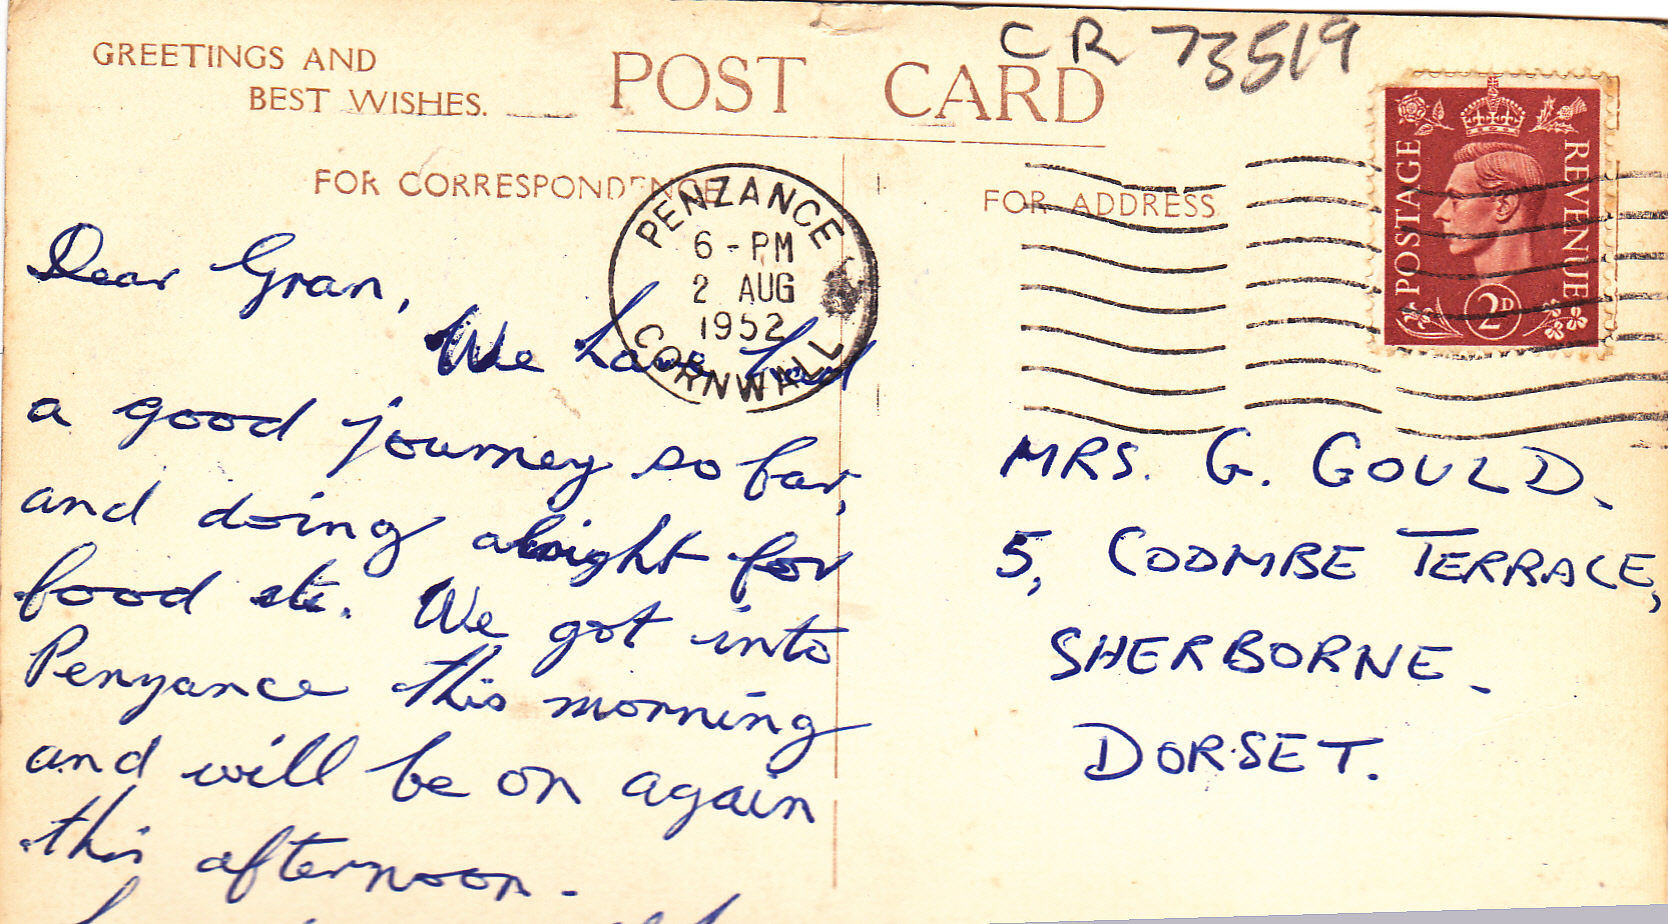 GREETINGS AND
BEST WISHES.
POST CARD
CR 73519
FOR CORRESPONDENCE
FOR ADDRESS
PENZANCE
6-PM
2 AUG
1952
CORNWALL
POSTAGE
REVENUE
2D
Dear Gran,
We have had
a good journey so far,
and doing alright for
food etc. We got into
Penzance this morning
and will be on again
this afternoon.
MRS. G. GOULD.
5, COOMBE TERRACE,
SHERBORNE.
DORSET.